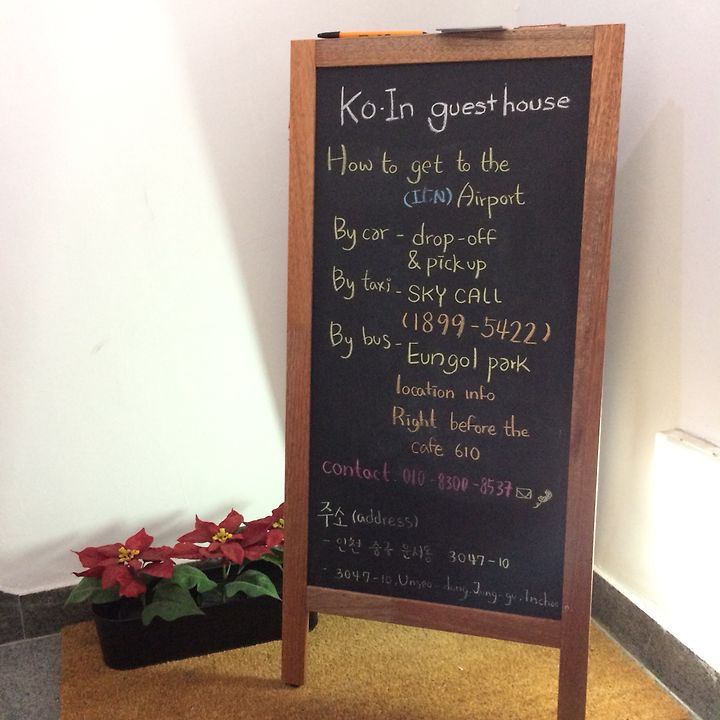 Ko-In guesthouse
How to get to the
(ICN) Airport
By car - drop-off
& pick up
By taxi - SKY CALL
(1899-5422)
By bus - Eungol park
location info
Right before the
cafe 610
contact. 010-8300-8537
주소 (address)
- 인천 중구 운서동 3047-10
- 3047-10, Unseo-dong, Jung-gu, Incheon.